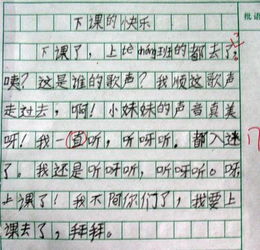 下课的快乐
下课了，上tè cháng班的都去
咦？这是谁的歌声？我顺这歌声
走过去，啊！小妹妹的声音真美
呀！我一直听，听呀听。都入迷
了。我还是听呀听，听呀听。呀
上课了！我不陪你们了，我要上
课去了，拜拜。
批语